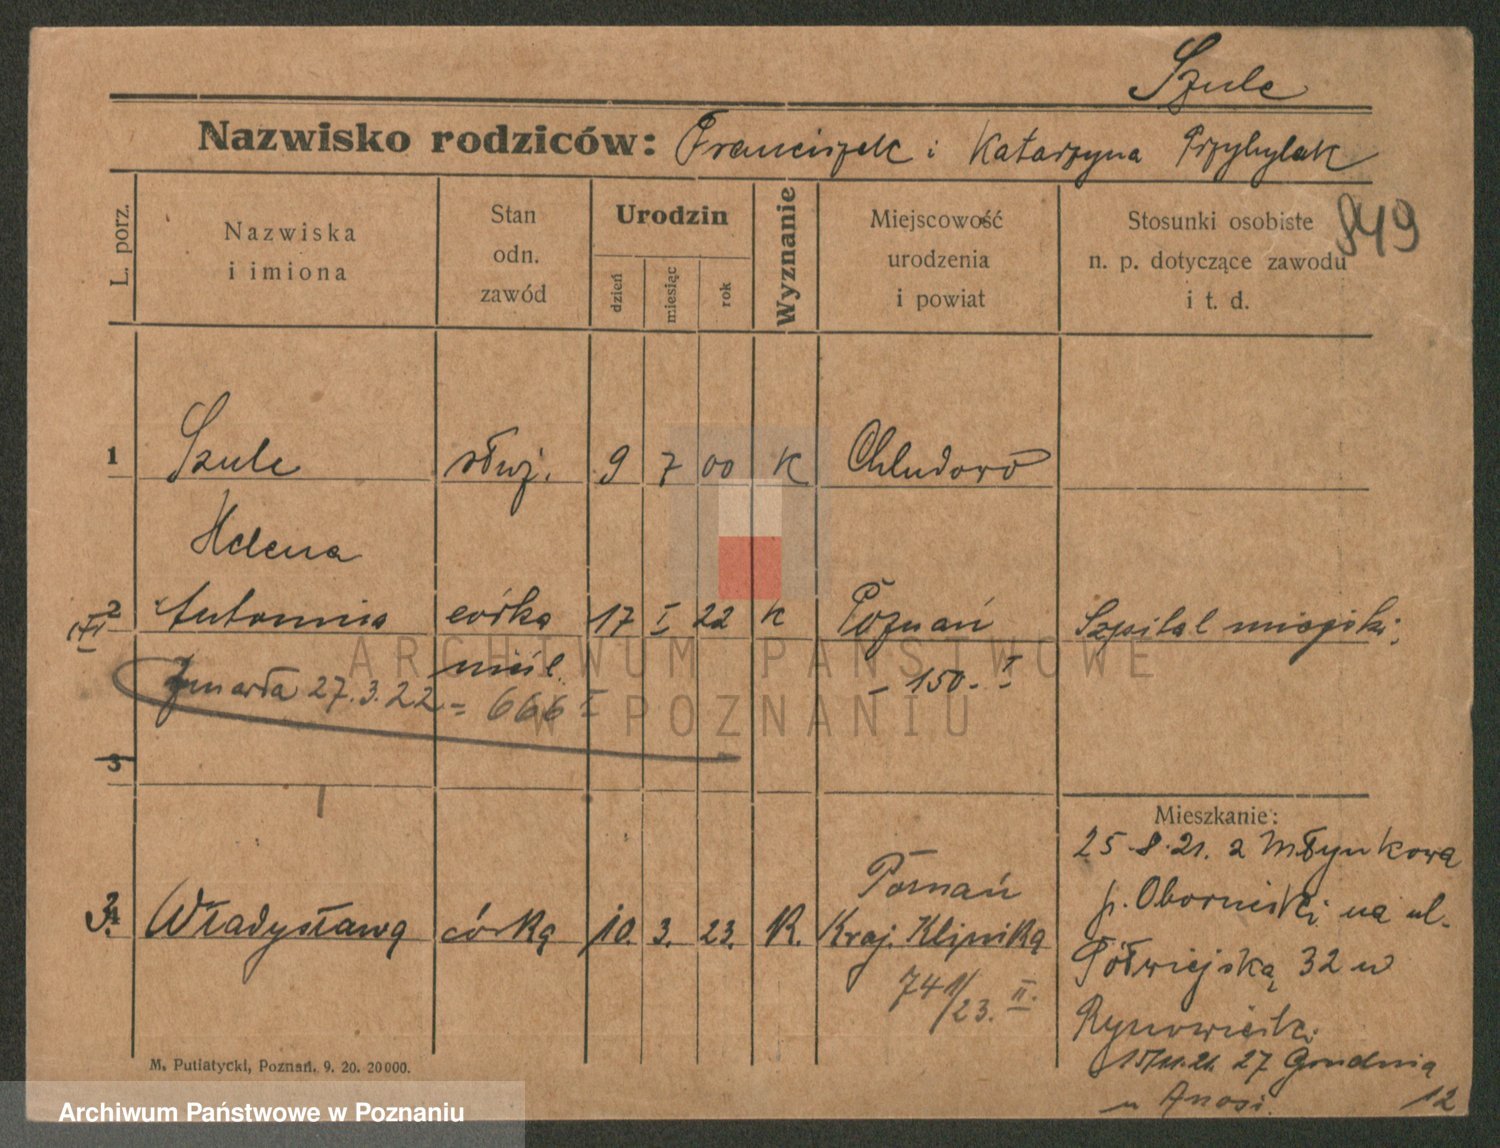 Szulc
Nazwisko rodziców: Franciszek i Katarzyna Przybylak
849
L. porz.
Nazwiska
i imiona
Stan
odn.
zawód
Urodzin
dzień
miesiąc
rok
Wyznanie
Miejscowość
urodzenia
i powiat
Stosunki osobiste
n. p. dotyczące zawodu
i t. d.
1 Szulc służ. 9 7 00 K Chludowo
Helena
2 Antonina córka 17 I 22 K Poznań Szpital miejski
nieśl. - 150. I
Zmarła 27.3.22 = 666 I
3
Mieszkanie:
25.8.21. z Młynkowa
p. Obornicki na ul.
Półwiejską 32 u
Poznań
Władysława córka 10. 3. 23. K. Kraj. Klinika
741/23. II.
15/11.21. 27 Grudnia
12
M. Putiatycki, Poznań. 9. 20. 20000.
ARCHIWUM PAŃSTWOWE
W POZNANIU
Archiwum Państwowe w Poznaniu